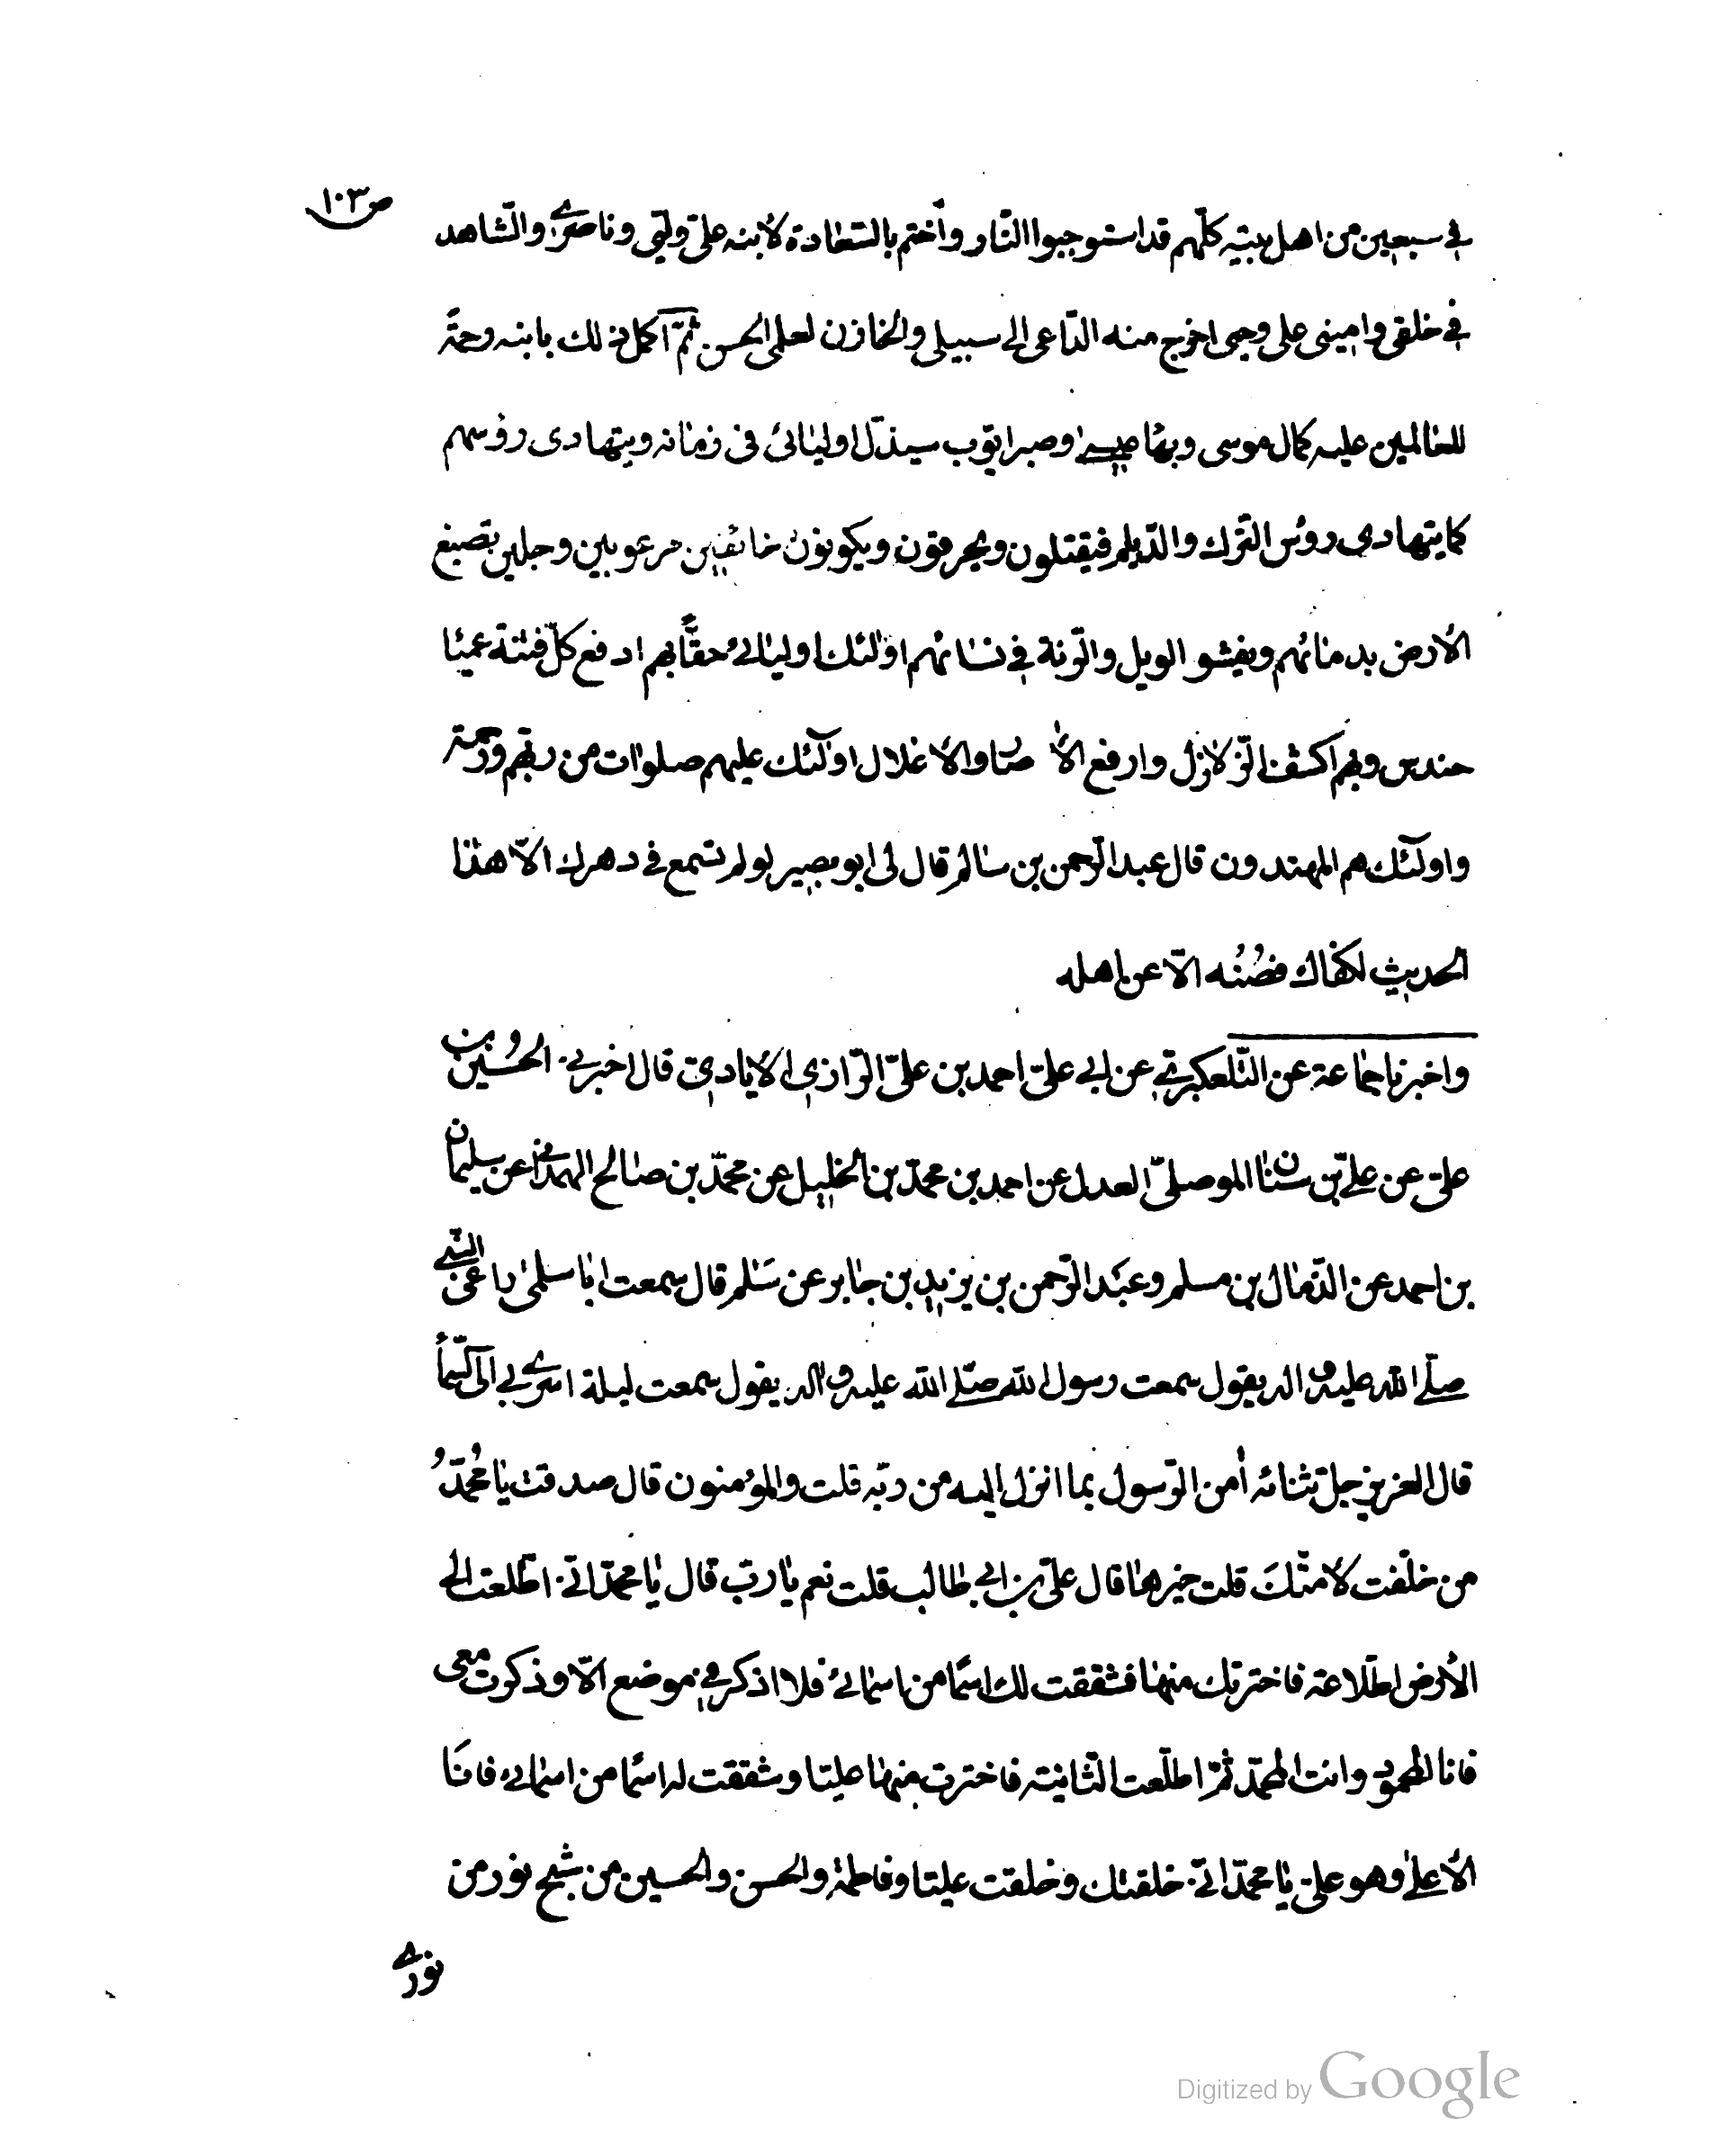 ص ١٠٣
في سبعين من اهل بيته كلّهم قد استوجبوا النّار وأختم بالسّعادة لأبنه علىّ وليّى وناصرى والشّاهد
في خلقى وامينى على وحيى اخرج منه الدّاعى الى سبيلى والخازن لعلمى الحسن ثمّ اكمل ذلك بابنه رحمةً
للعالمين عليه كمال موسى وبهاء عيسى وصبر ايّوب سيذلّ اوليائى فى زمانه ويتهادى رؤسهم
كما يتهادى رؤس الترك والدّيلم فيقتلون ويحرقون ويكونون خائفين مرعوبين وجلين تصبغ
الأرض بدمائهم ويفشو الويل والرّنة في نسائهم اولئك اوليائى حقًّا بهم ادفع كلّ فتنة عمياء
حندس وبهم اكشف الزّلازل وارفع الأصار والأغلال اولئك عليهم صلوات من ربّهم ورحمة
واولئك هم المهتدون قال عبد الرّحمن بن سالم قال لى ابو بصير لو لم تسمع في دهرك الاّ هذا
الحديث لكفاك فصُنْه الاّ عن اهله
واخبرنا جماعة عن التّلعكبرىّ عن ابى علىّ احمد بن علىّ الرّازى الأيادىّ قال اخبرنى الحُسين بن
علىّ عن علىّ بن سنان الموصلىّ العدل عن احمد بن محمّد بن الخليل عن محمّد بن صالح الهمدانى عن سليمان
بن احمد عن الذّمال بن مسلم وعبد الرّحمن بن يزيد بن جابر عن سَلام قال سمعت ابا سلمى راعى النّبى
صلّى الله عليه واله يقول سمعت رسول الله صلّى الله عليه واله يقول سمعت ليلة اسرى بى الى السّماء
قال العزيز جلّ ثنائه أمن الرّسول بما انزل اليه من ربّه قلت والمؤمنون قال صدقت يا مُحمّدُ
من خلّفت لأمّتكَ قلت خيرها قال علىّ بن ابى طالب قلت نعم يا ربّ قال يا محمّد انّى اطّلعت الى
الأرض اطّلاعة فاخترتك منها فشققت لك اسمًا من اسمائى فلا اذكر في موضع الاّ وذكرت معى
فانا المحمود وانت المحمّد ثمّ اطّلعت الثّانية فاخترت منها عليّا وشققت له اسمًا من اسمائى فانا
الأعلى وهو علىّ يا محمّد انّى خلقتك وخلقت عليّا وفاطمة والحسن والحسين من شبح نور من
نورى
Digitized by Google